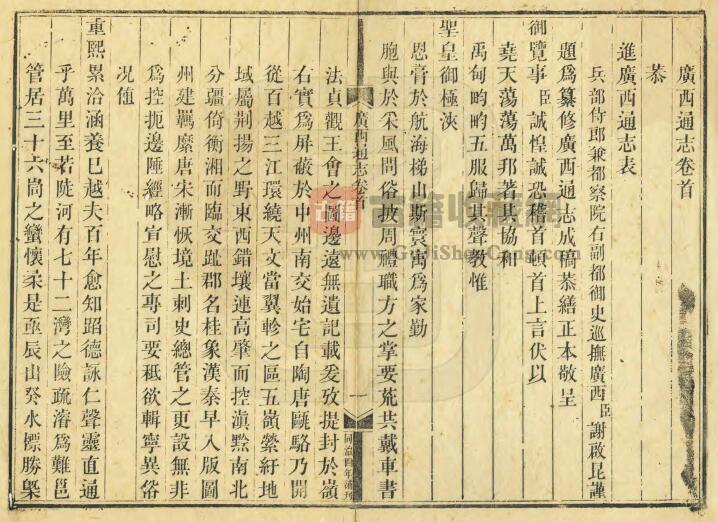 廣西通志卷首
恭
進廣西通志表
兵部侍郎兼都察院右副都御史巡撫廣西臣謝啟昆謹
題爲纂修廣西通志成稿恭繕正本敬呈
御覽事臣誠惶誠恐稽首頓首上言伏以
堯天蕩蕩萬邦著其協和
禹甸畇畇五服歸其聲教惟
聖皇御極浹
恩膏於航海梯山斯寰寓爲家勤
胞與於采風問俗披周禮職方之掌要荒共戴車書
廣西通志卷首
一
同治四年補刊
法貞觀王會之圖邊遠無遺記載爰攷提封於嶺
右實爲屏蔽於中州南交始宅自陶唐甌駱乃開
從百越三江環繞天文當翼軫之區五嶺縈紆地
域屬荆揚之野東西錯壤連高肇而控滇黔南北
分疆倚衡湘而臨交趾郡名桂象漢秦早入版圖
州建羈縻唐宋漸恢境土刺史總管之更設無非
爲控扼邊陲經略宣慰之專司要秪欲輯寧異俗
况值
重熙累洽涵養已越夫百年愈知昭德詠仁聲靈直通
乎萬里至若陡河有七十二灣之險疏濬爲難邕
管居三十六峝之蠻懷柔是亟辰山癸水標勝槩
古籍收藏網
www.GujiShuCang.com